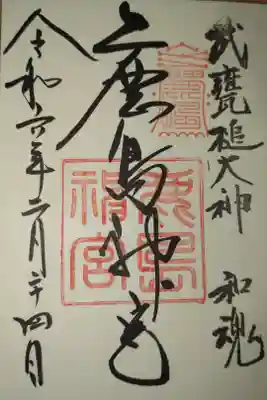 武甕槌大神 和魂
鹿島神宮
鹿島神宮
令和六年二月二十四日